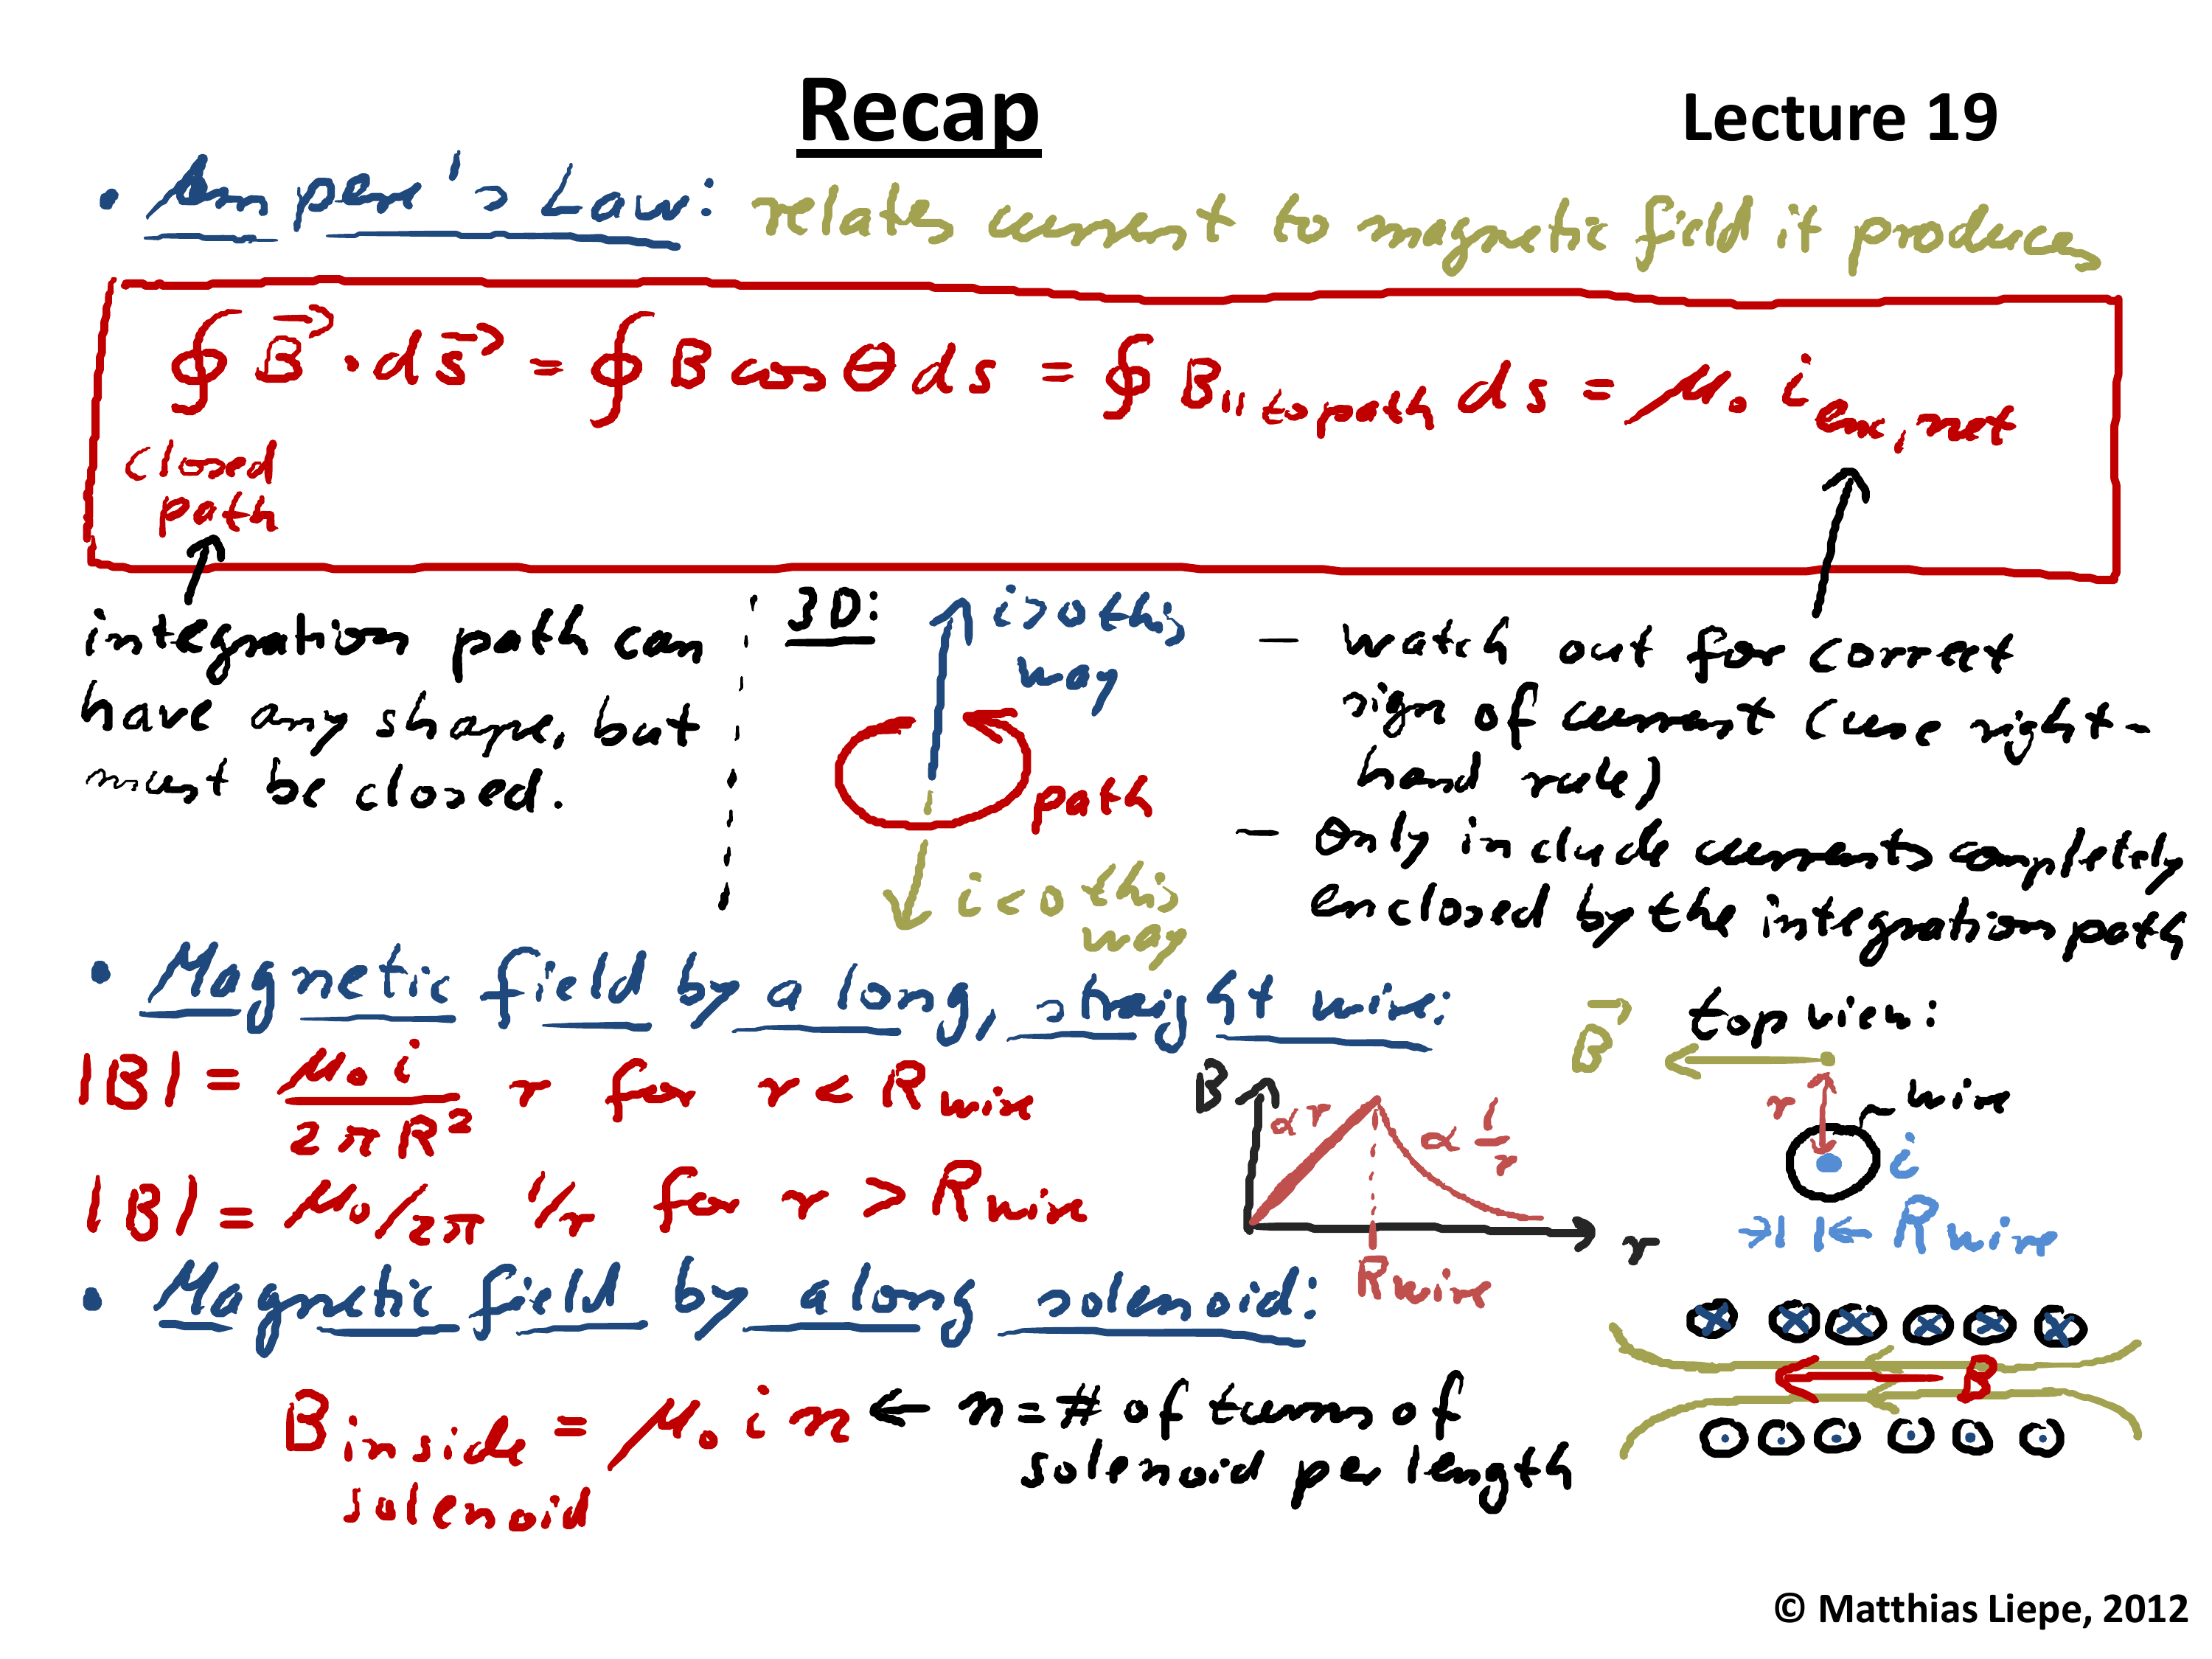 Recap
Lecture 19
• Ampere's Law: relates current to magnetic field it produces
∮ B⃗ · ds⃗ = ∮ B cos θ ds = ∮ B|| to path ds = μ₀ i enc, net
closed
path
integration path can
have any shape, but
must be closed.
3D:
i>0 this
way
path
i<0 this
way
– watch out for correct
sign of current (use right-
hand rule)
– Only include currents completely
enclosed by the integration path
• Magnetic field by a long, straight wire:
|B| = μ₀ i / 2πR² r for r < R wire
|B| = μ₀/2π 1/r for r > R wire
B
∝ r
∝ 1/r
R wire
r
top view:
B⃗
r
wire
i
R wire
• Magnetic field by a long solenoid:
B inside solenoid = μ₀ i n ← n = # of turns of
solenoid per length
B
© Matthias Liepe, 2012